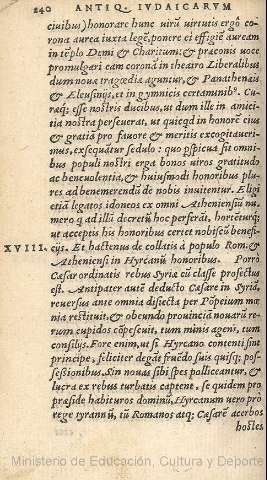 240 ANTIQ. IVDAICARVM
ciuibus) honorare hunc virũ virtutis ergò co-
rona aurea iuxta legẽ, ponere ei effigiẽ auream
in tẽplo Demi & Charitum: & præconis uoce
promulgari eam coronã in theatro Liberalibus
dum nouæ tragœdiæ aguntur, & Panathenæis
& Eleusinijs, et in gymnicis certaminib⁹. Cu-
ræq; esse nostris ducibus, ut dum ille in amici-
tia nostra perseuerat, ut quicqd in honorẽ eius
& gratiã pro fauore & meritis excogitaueri-
mus, exsequãtur sedulo: quo pspicuũ sit omni-
bus populi nostri erga bonos uiros gratitudo
ac beneuolentia, & huiusmodi honoribus plu-
res ad benemerendũ de nobis inuitentur. Eligi
etiã legatos idoneos ex omni Atheniensiũ nu-
mero, q ad illũ decretũ hoc perferãt, hortẽturq;
ut acceptis his honoribus certet nobiscũ benefi-
XVIII. cijs. Et hactenus de collatis à populo Rom. &
Atheniensi in Hyrcanũ honoribus. Porrò
Cæsar ordinatis rebus Syriæ cũ classe profectus
est. Antipater autẽ deducto Cæsare in Syriã,
reuersus ante omnia disiecta per Põpeium mœ-
nia restituit, & obeundo prouinciã nouarũ re-
rum cupidos cõpescuit, tum minis agens, tum
consilijs. Fore enim, ut si Hyrcano contenti sint
principe, feliciter degãt fruẽdo suis quisq; pos-
sessionibus. Sin nouas sibi spes polliceantur, &
lucra ex rebus turbatis captent, se quidem pro
præside habituros dominũ, Hyrcanum uero pro
rege tyrannũ, iũ Romanos atq; Cæsarẽ acerbos
hostes
Ministerio de Educación, Cultura y Deporte